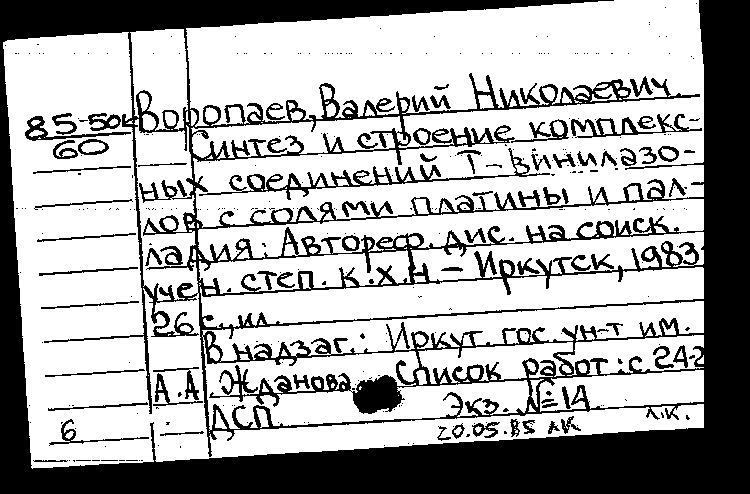 85-50к
60
Воропаев, Валерий Николаевич.
Синтез и строение комплекс-
ных соединений Т-винилазо-
лов с солями платины и пал-
ладия: Автореф. дис. на соиск.
учен. степ. к.х.н. – Иркутск, 1983
26 с., ил.
В надзаг.: Иркут. гос. ун-т им.
А.А. Жданова Список работ: с. 24-2
ДСП. Экз. № 14
6
20.05.85 ЛК
Л.К.